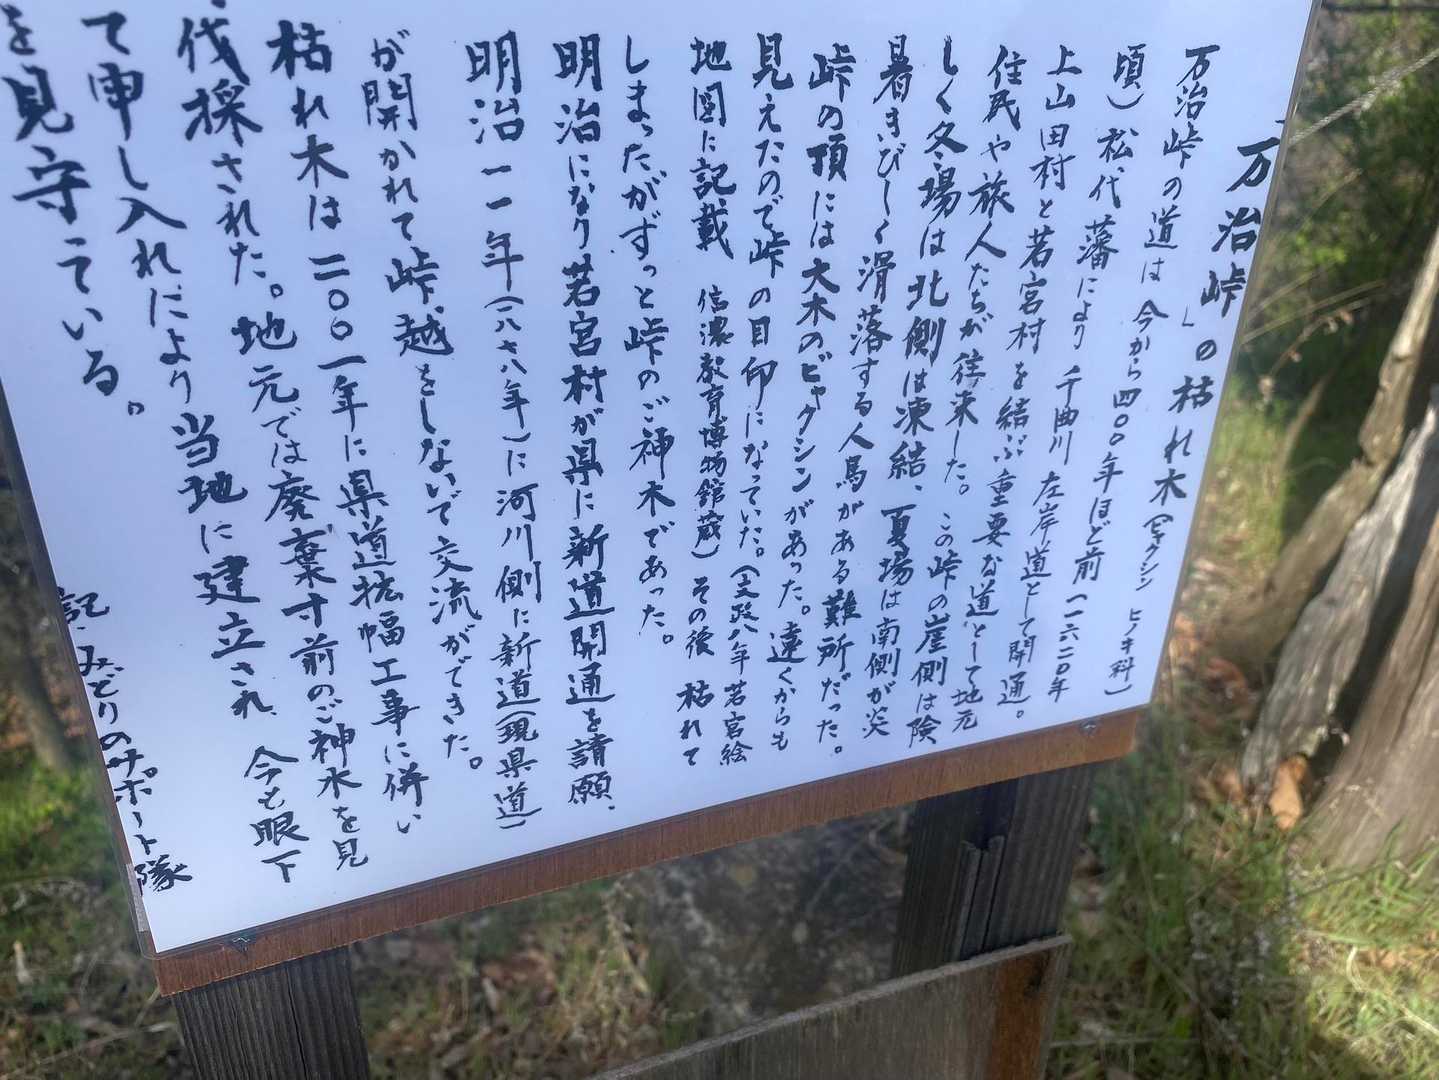 「万治峠」の枯れ木(ビャクシン ヒノキ科)
万治峠の道は今から四〇〇年ほど前(一六二〇年
頃)松代藩により千曲川左岸道として開通。
上山田村と若宮村を結ぶ重要な道として地元
住民や旅人たちが往来した。この峠の崖側は険
しく冬場は北側は凍結、夏場は南側が炎
暑きびしく滑落する人馬がある難所だった。
峠の頂には大木のビャクシンがあった。遠くからも
見えたので峠の目印になっていた。(文政八年若宮絵
地図に記載 信濃教育博物館蔵)その後 枯れて
しまったがずっと峠のご神木であった。
明治になり若宮村が県に新道開通を請願、
明治一一年(一八七八年)に河川側に新道(現県道)
が開かれて峠越をしないで交流ができた。
枯れ木は二〇〇一年に県道拡幅工事に併い
伐採された。地元では廃棄寸前のご神木を見
て申し入れにより当地に建立され、今も眼下
を見守っている。
記・みどりのサポート隊